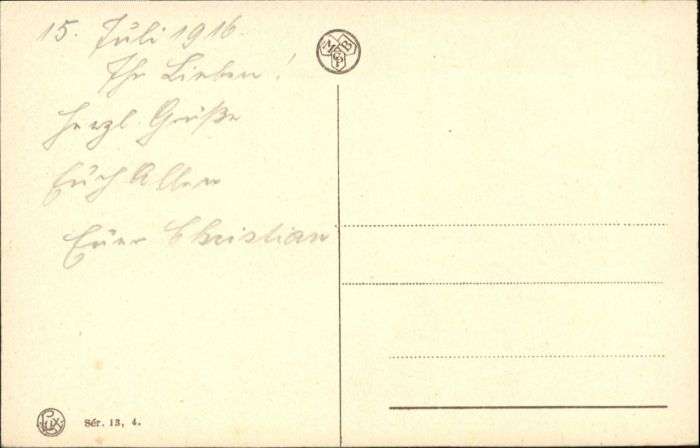 15. Juli 1916.
Ihr Lieben!
Herzl. Grüße
Euch Allen
Euer Christian
MB
Lux
Sér. 13, 4.